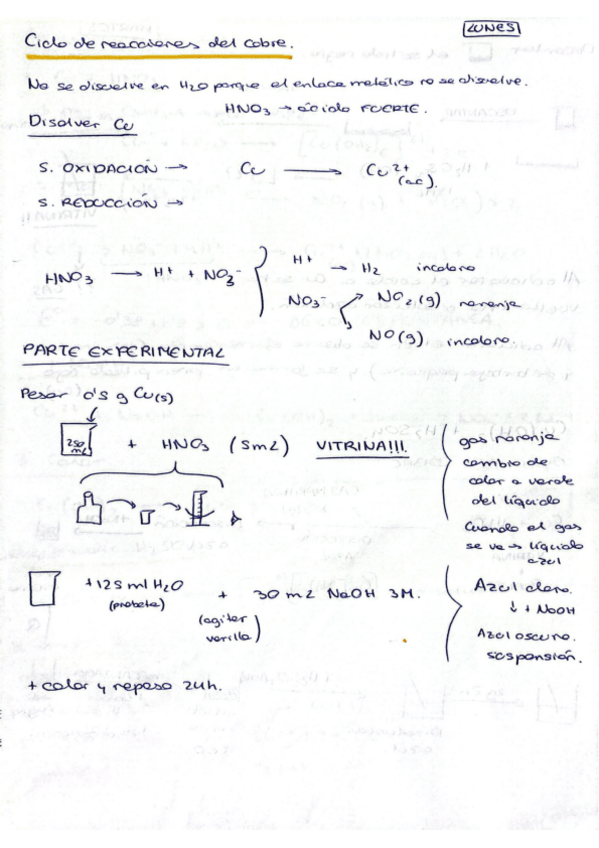 LUNES
Ciclo de reacciones del cobre.
No se disuelve en H2O porque el enlace metálico no se disuelve.
HNO3 → ácido FUERTE.
Disolver Cu
S. OXIDACIÓN → Cu → Cu2+ (ac)
S. REDUCCIÓN →
HNO3 → H+ + NO3-
H+ → H2 incoloro
NO3- NO2(g) naranja
NO(g) incoloro.
PARTE EXPERIMENTAL
Pesar 0's g Cu(s)
250 mL + HNO3 (5mL) VITRINA!!!
gas naranja
cambio de
color a verde
del líquido
Cuando el gas
se va → líquido
azul
+125 ml H2O + 30 mL NaOH 3M.
(probeta)
(agitar
varilla)
Azul claro.
↓ + NaOH
Azul oscuro.
suspensión.
+ calor y reposo 24h.